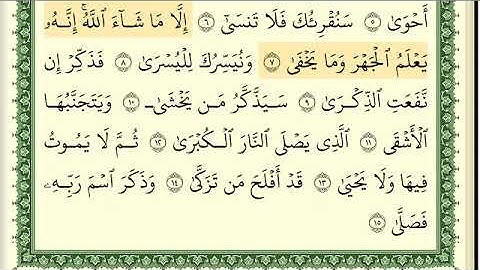 أَحْوَىٰ ٥ سَنُقْرِئُكَ فَلَا تَنسَىٰٓ ٦ إِلَّا مَا شَآءَ ٱللَّهُ ۚ إِنَّهُۥ
يَعْلَمُ ٱلْجَهْرَ وَمَا يَخْفَىٰ ٧ وَنُيَسِّرُكَ لِلْيُسْرَىٰ ٨ فَذَكِّرْ إِن
نَّفَعَتِ ٱلذِّكْرَىٰ ٩ سَيَذَّكَّرُ مَن يَخْشَىٰ ١٠ وَيَتَجَنَّبُهَا
ٱلْأَشْقَى ١١ ٱلَّذِى يَصْلَى ٱلنَّارَ ٱلْكُبْرَىٰ ١٢ ثُمَّ لَا يَمُوتُ
فِيهَا وَلَا يَحْيَىٰ ١٣ قَدْ أَفْلَحَ مَن تَزَكَّىٰ ١٤ وَذَكَرَ ٱسْمَ رَبِّهِۦ
فَصَلَّىٰ ١٥